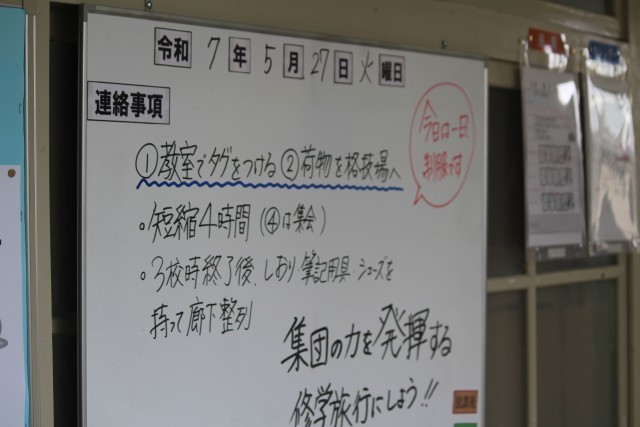 令和 7 年 5 月 27 日 火 曜日
連絡事項
今日は一日
制服です
①教室でタグをつける ②荷物を格技場へ
○短縮4時間 (④は集会)
○3校時終了後、しおり・筆記用具・シューズを
持って廊下整列
集団の力を発揮する
修学旅行にしよう!!